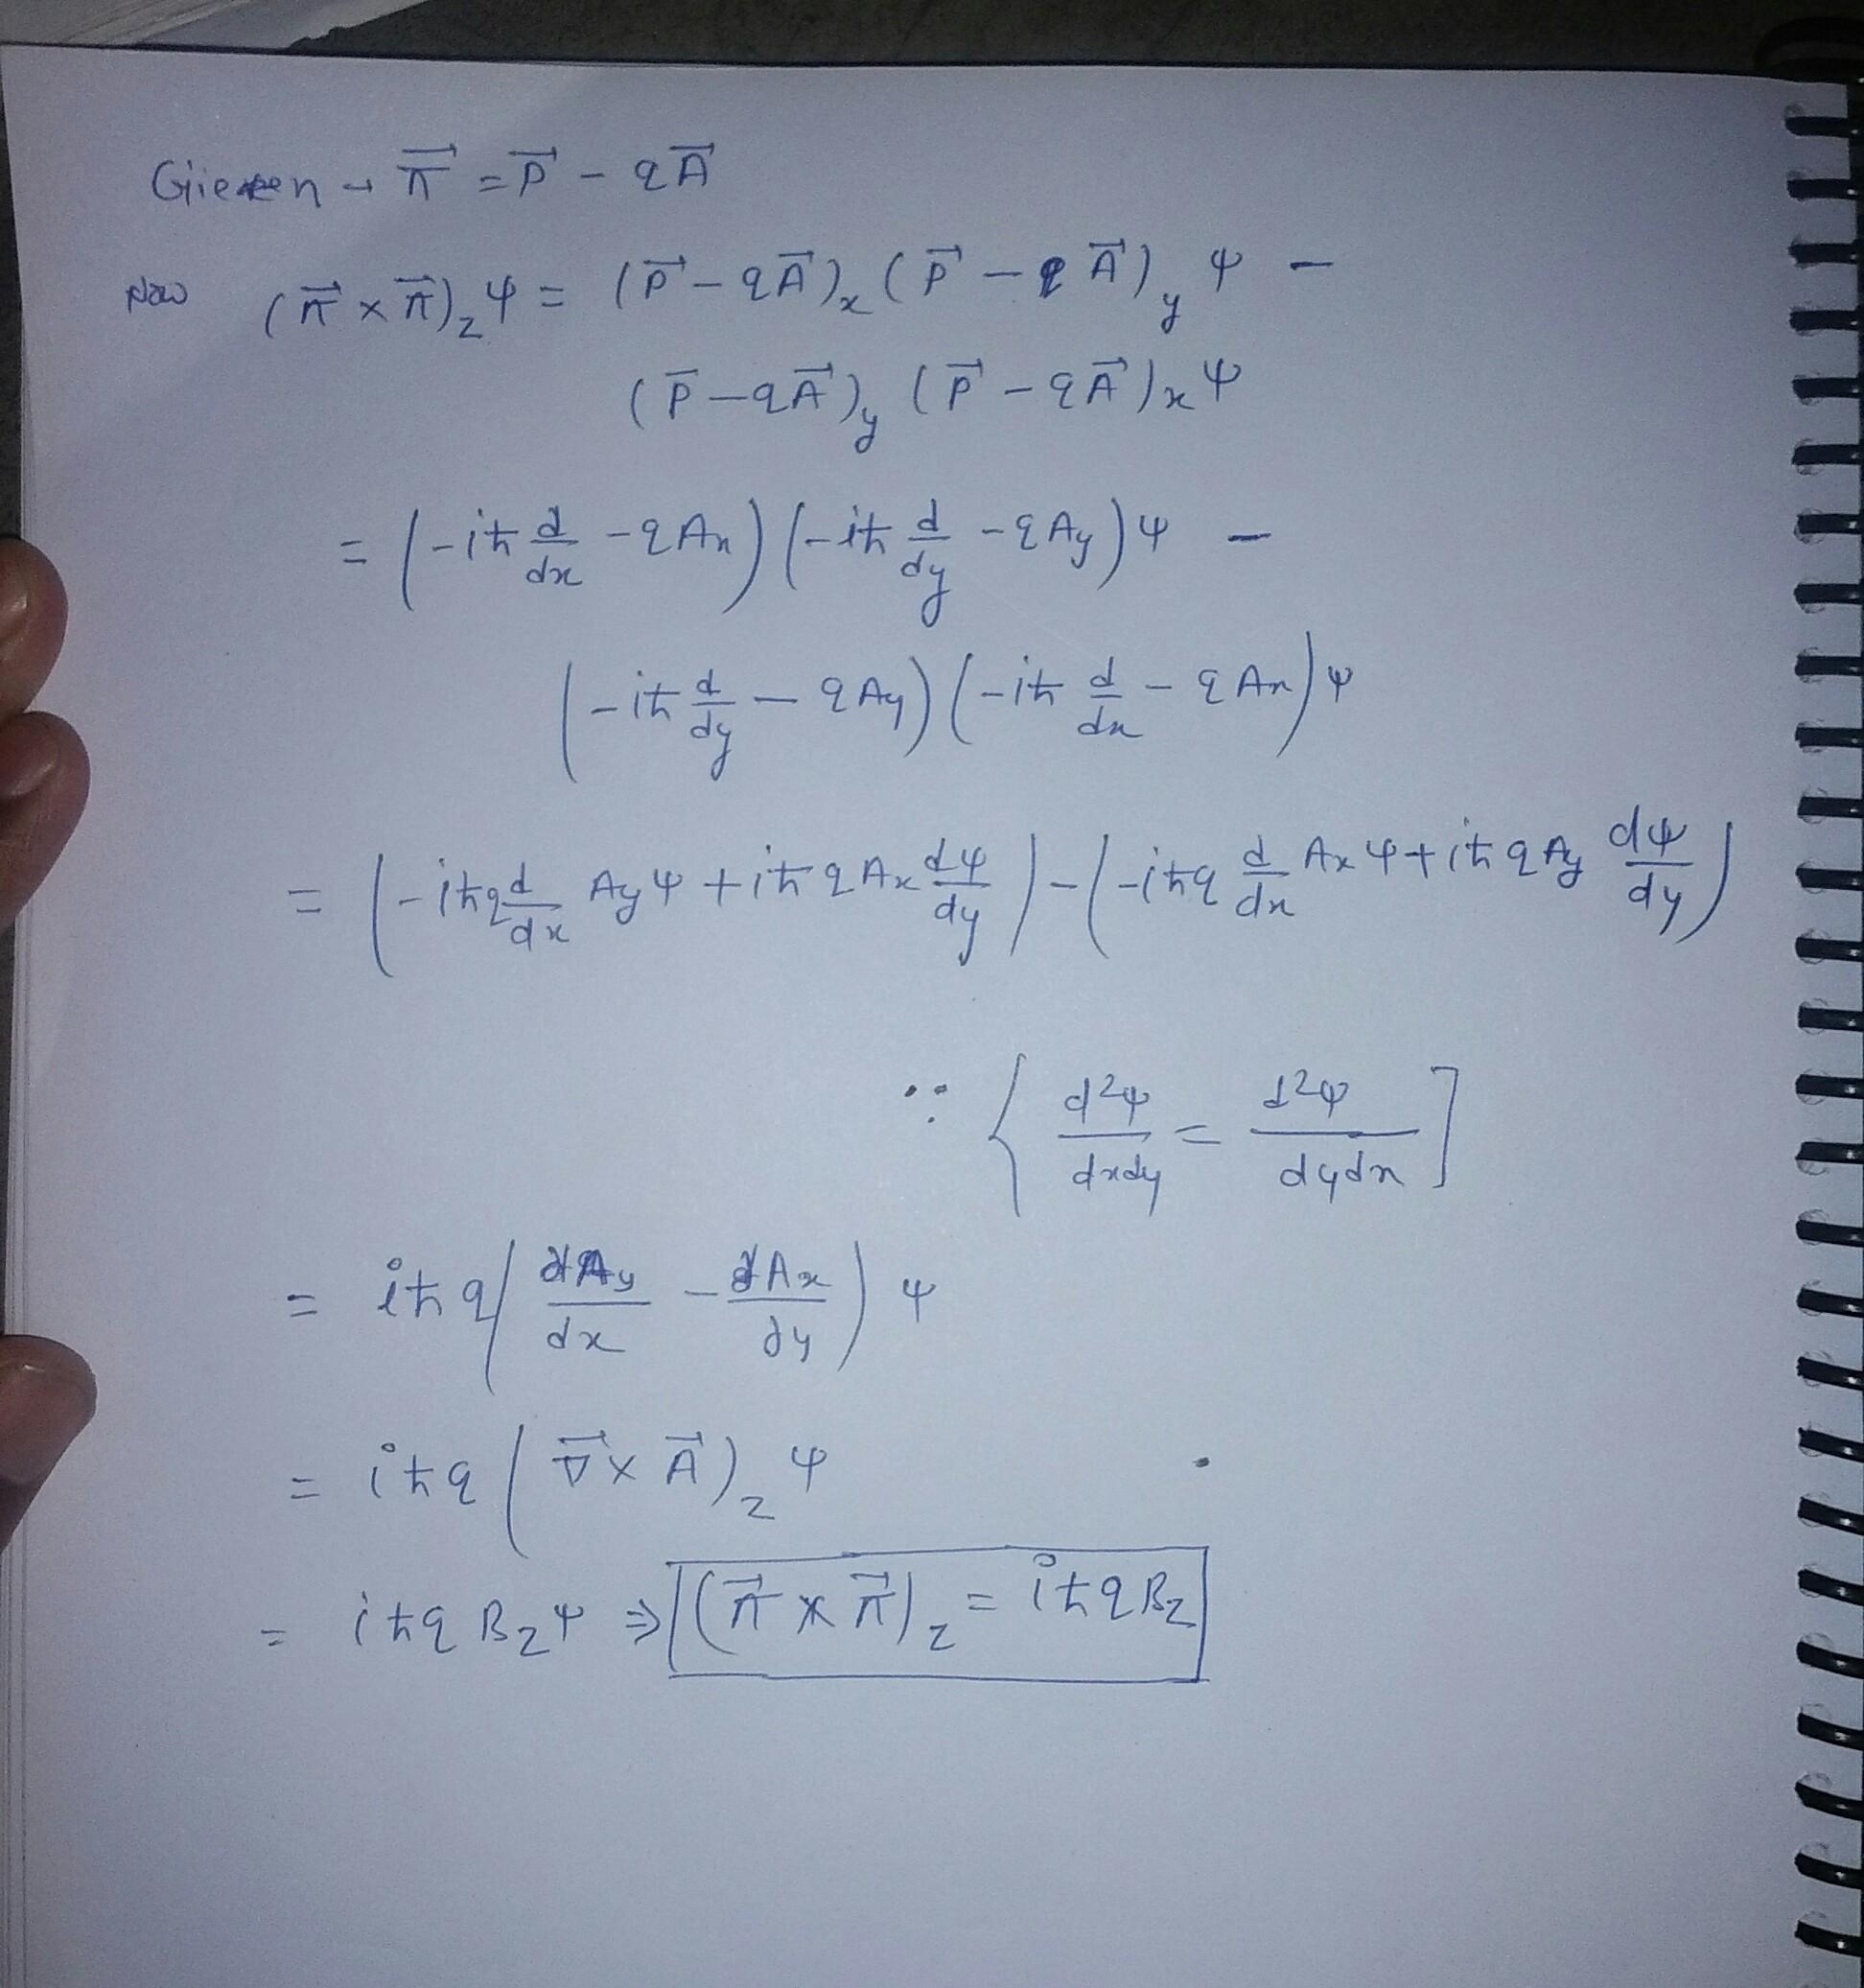 Gieven → π⃗ = P⃗ - qA⃗
Now (π⃗ × π⃗)_z ψ = (P⃗ - qA⃗)_x (P⃗ - qA⃗)_y ψ -
(P⃗ - qA⃗)_y (P⃗ - qA⃗)_x ψ
= (-iħ d/dx - qA_x) (-iħ d/dy - qA_y) ψ -
(-iħ d/dy - qA_y) (-iħ d/dx - qA_x) ψ
= (-iħq d/dx A_y ψ + iħqA_x dψ/dy) - (-iħq d/dx A_x ψ + iħqA_y dψ/dy)
∵ { d²ψ/dxdy = d²ψ/dydx ]
= iħq (∂A_y/dx - ∂A_x/∂y) ψ
= iħq (∇⃗ × A⃗)_z ψ
= iħq B_z ψ ⇒ (π⃗ × π⃗)_z = iħqB_z